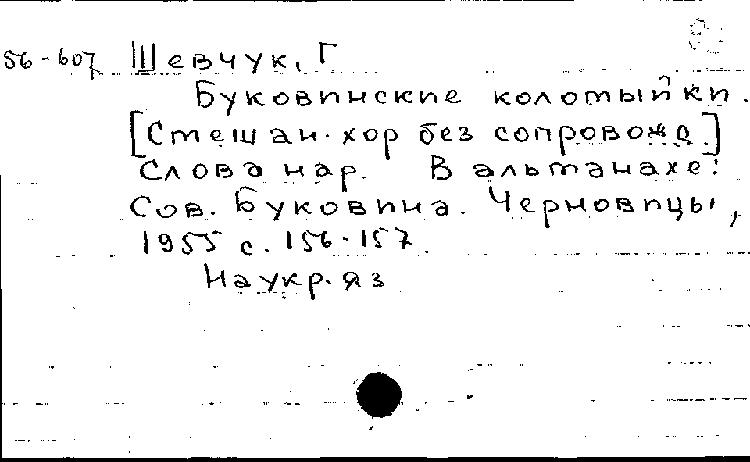 56-607 Шевчук, Г
Буковинские коломыйки.
[Смешан. хор без сопровожд.]
Слова нар. В альманахе:
Сов. Буковина. Черновицы,
1955 с. 156-157
На укр. яз